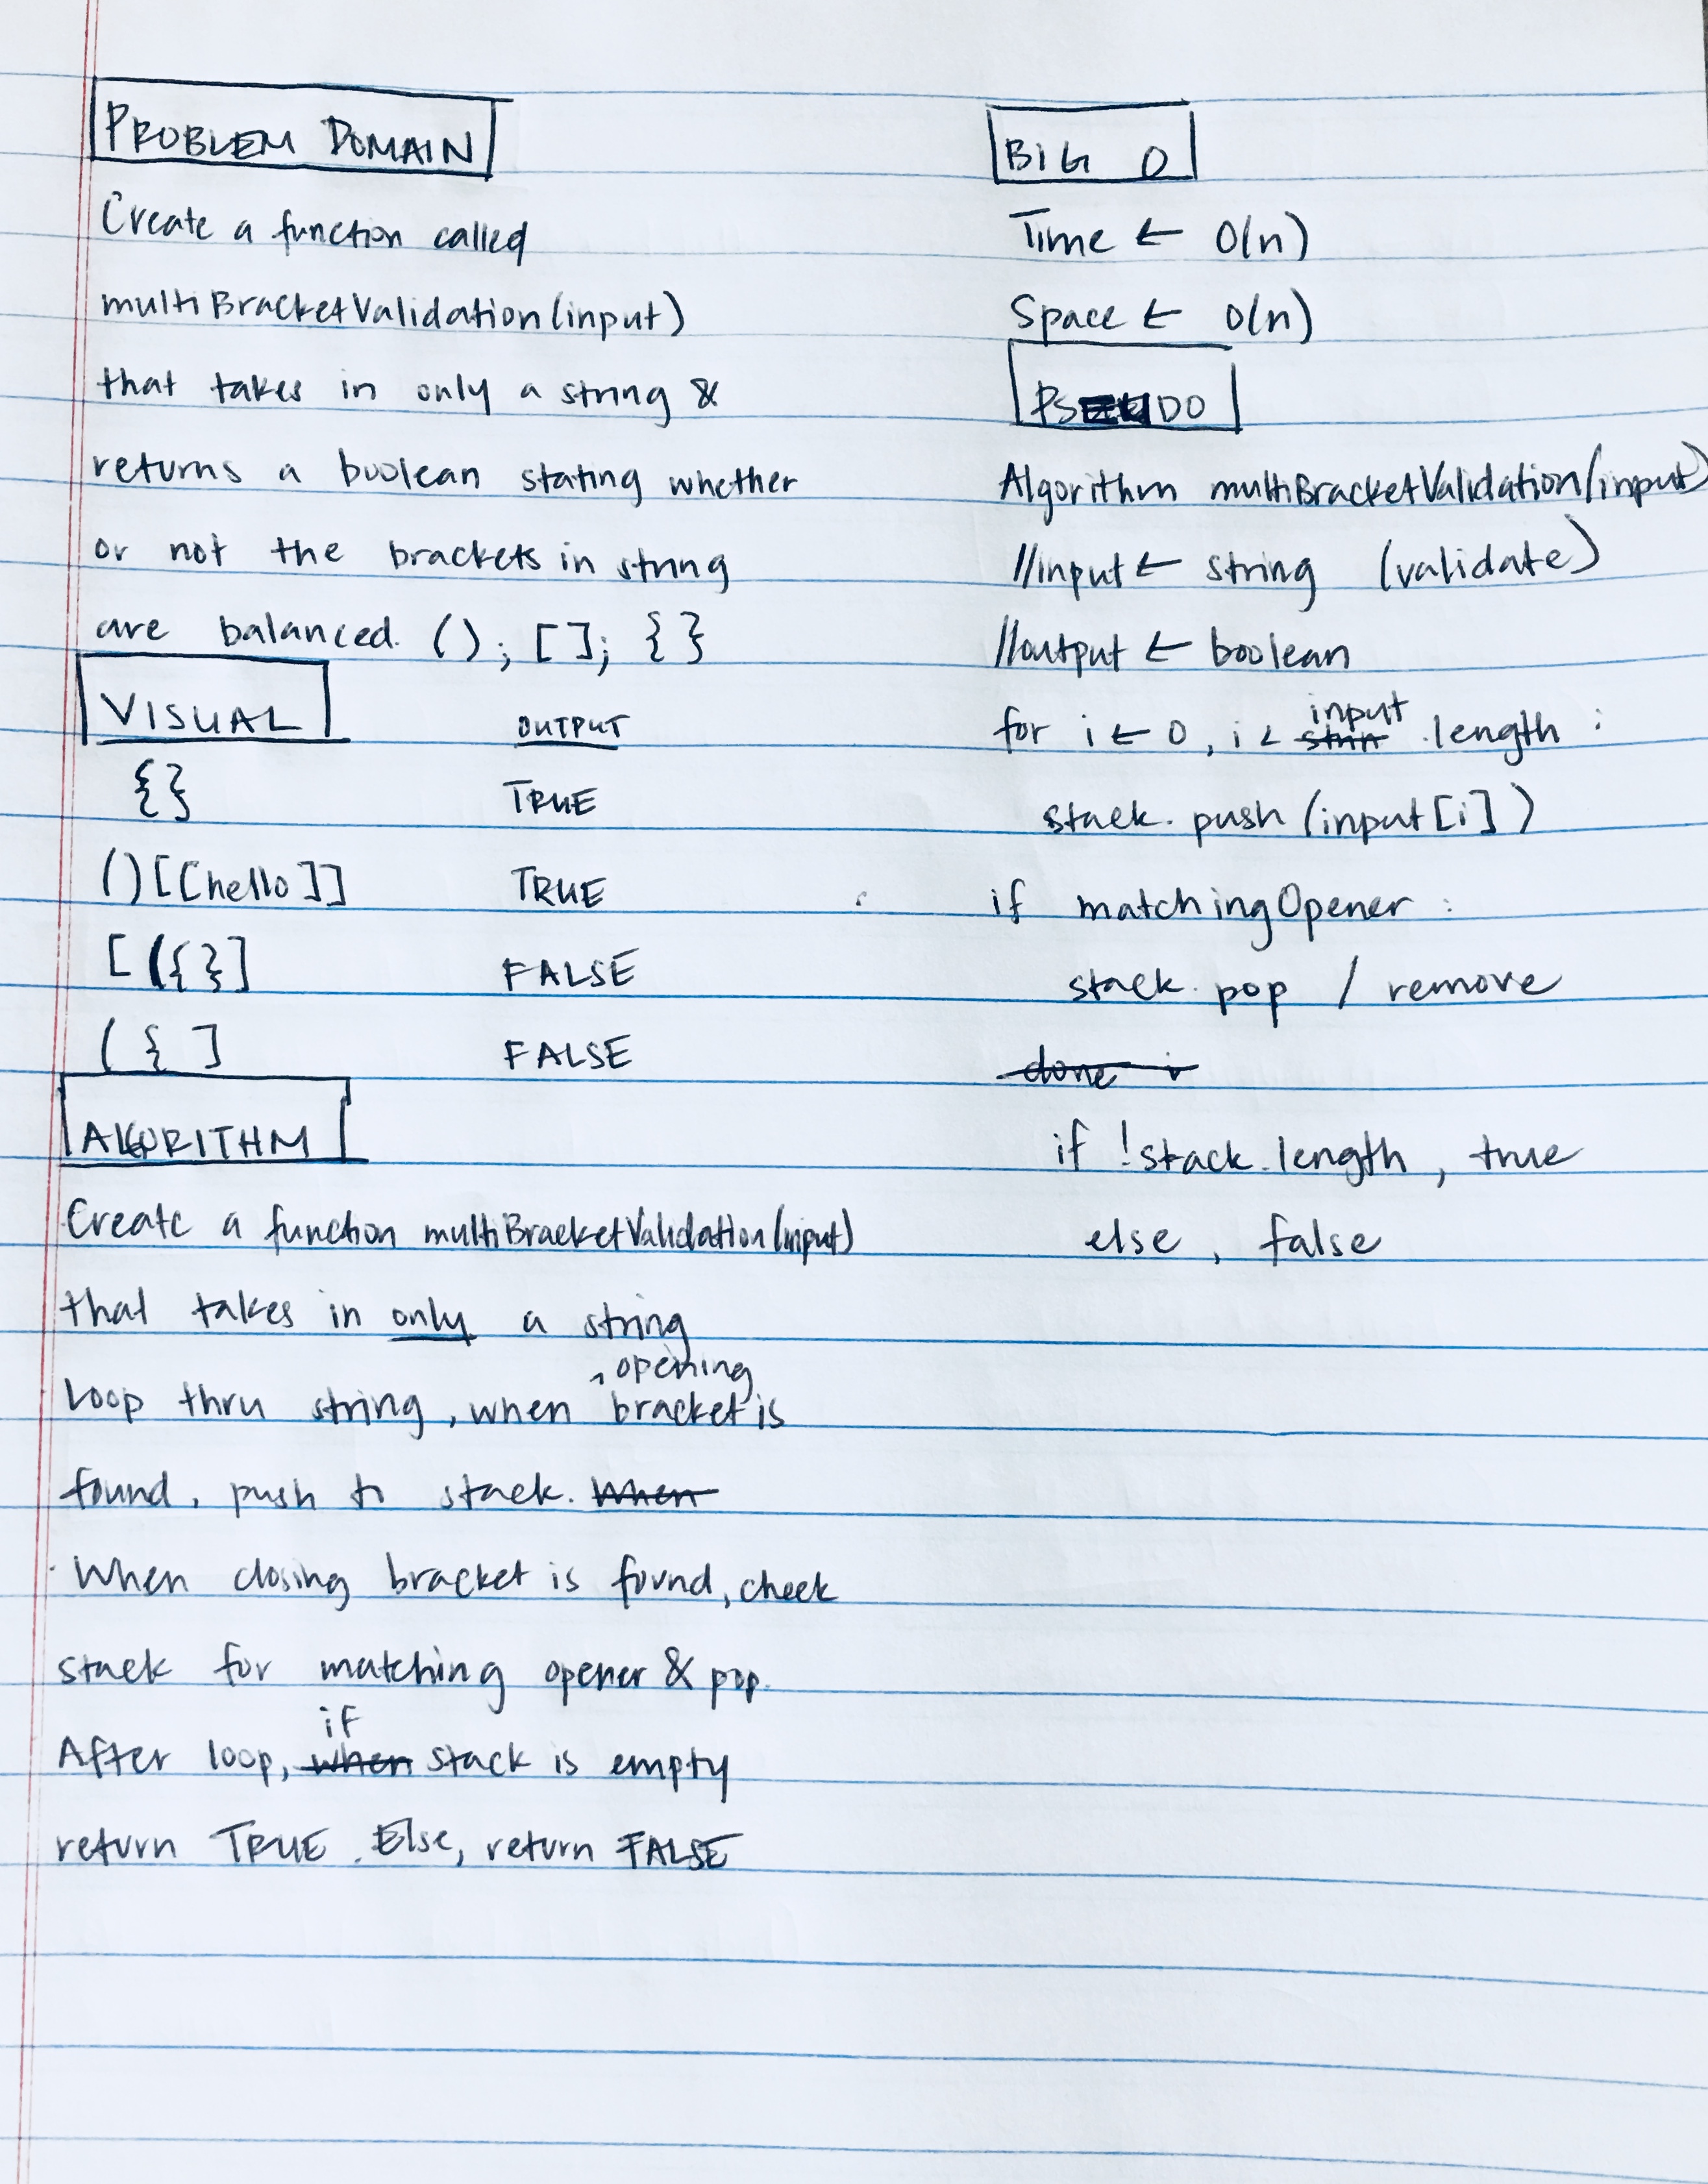 PROBLEM DOMAIN
Create a function called
multiBracketValidation(input)
that takes in only a string &
returns a boolean stating whether
or not the brackets in string
are balanced. (); []; {}
VISUAL OUTPUT
{} TRUE
()[[hello]] TRUE
[({}] FALSE
({] FALSE
ALGORITHM
Create a function multiBracketValidation(input)
that takes in only a string
Loop thru string, when opening bracket is
found, push to stack. When
When closing bracket is found, check
stack for matching opener & pop.
After loop, when if stack is empty
return TRUE. Else, return FALSE
BIG O
Time ← O(n)
Space ← O(n)
PSEUDO
Algorithm multiBracketValidation(input)
//input ← string (validate)
//output ← boolean
for i ← 0, i < input .length :
stack.push(input[i])
if matchingOpener :
stack.pop / remove
done i
if !stack.length, true
else, false